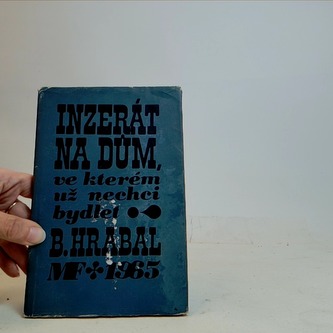 INZERÁT
NA DŮM,
ve kterém
už nechci
bydlet
B. HRABAL
MF 1965